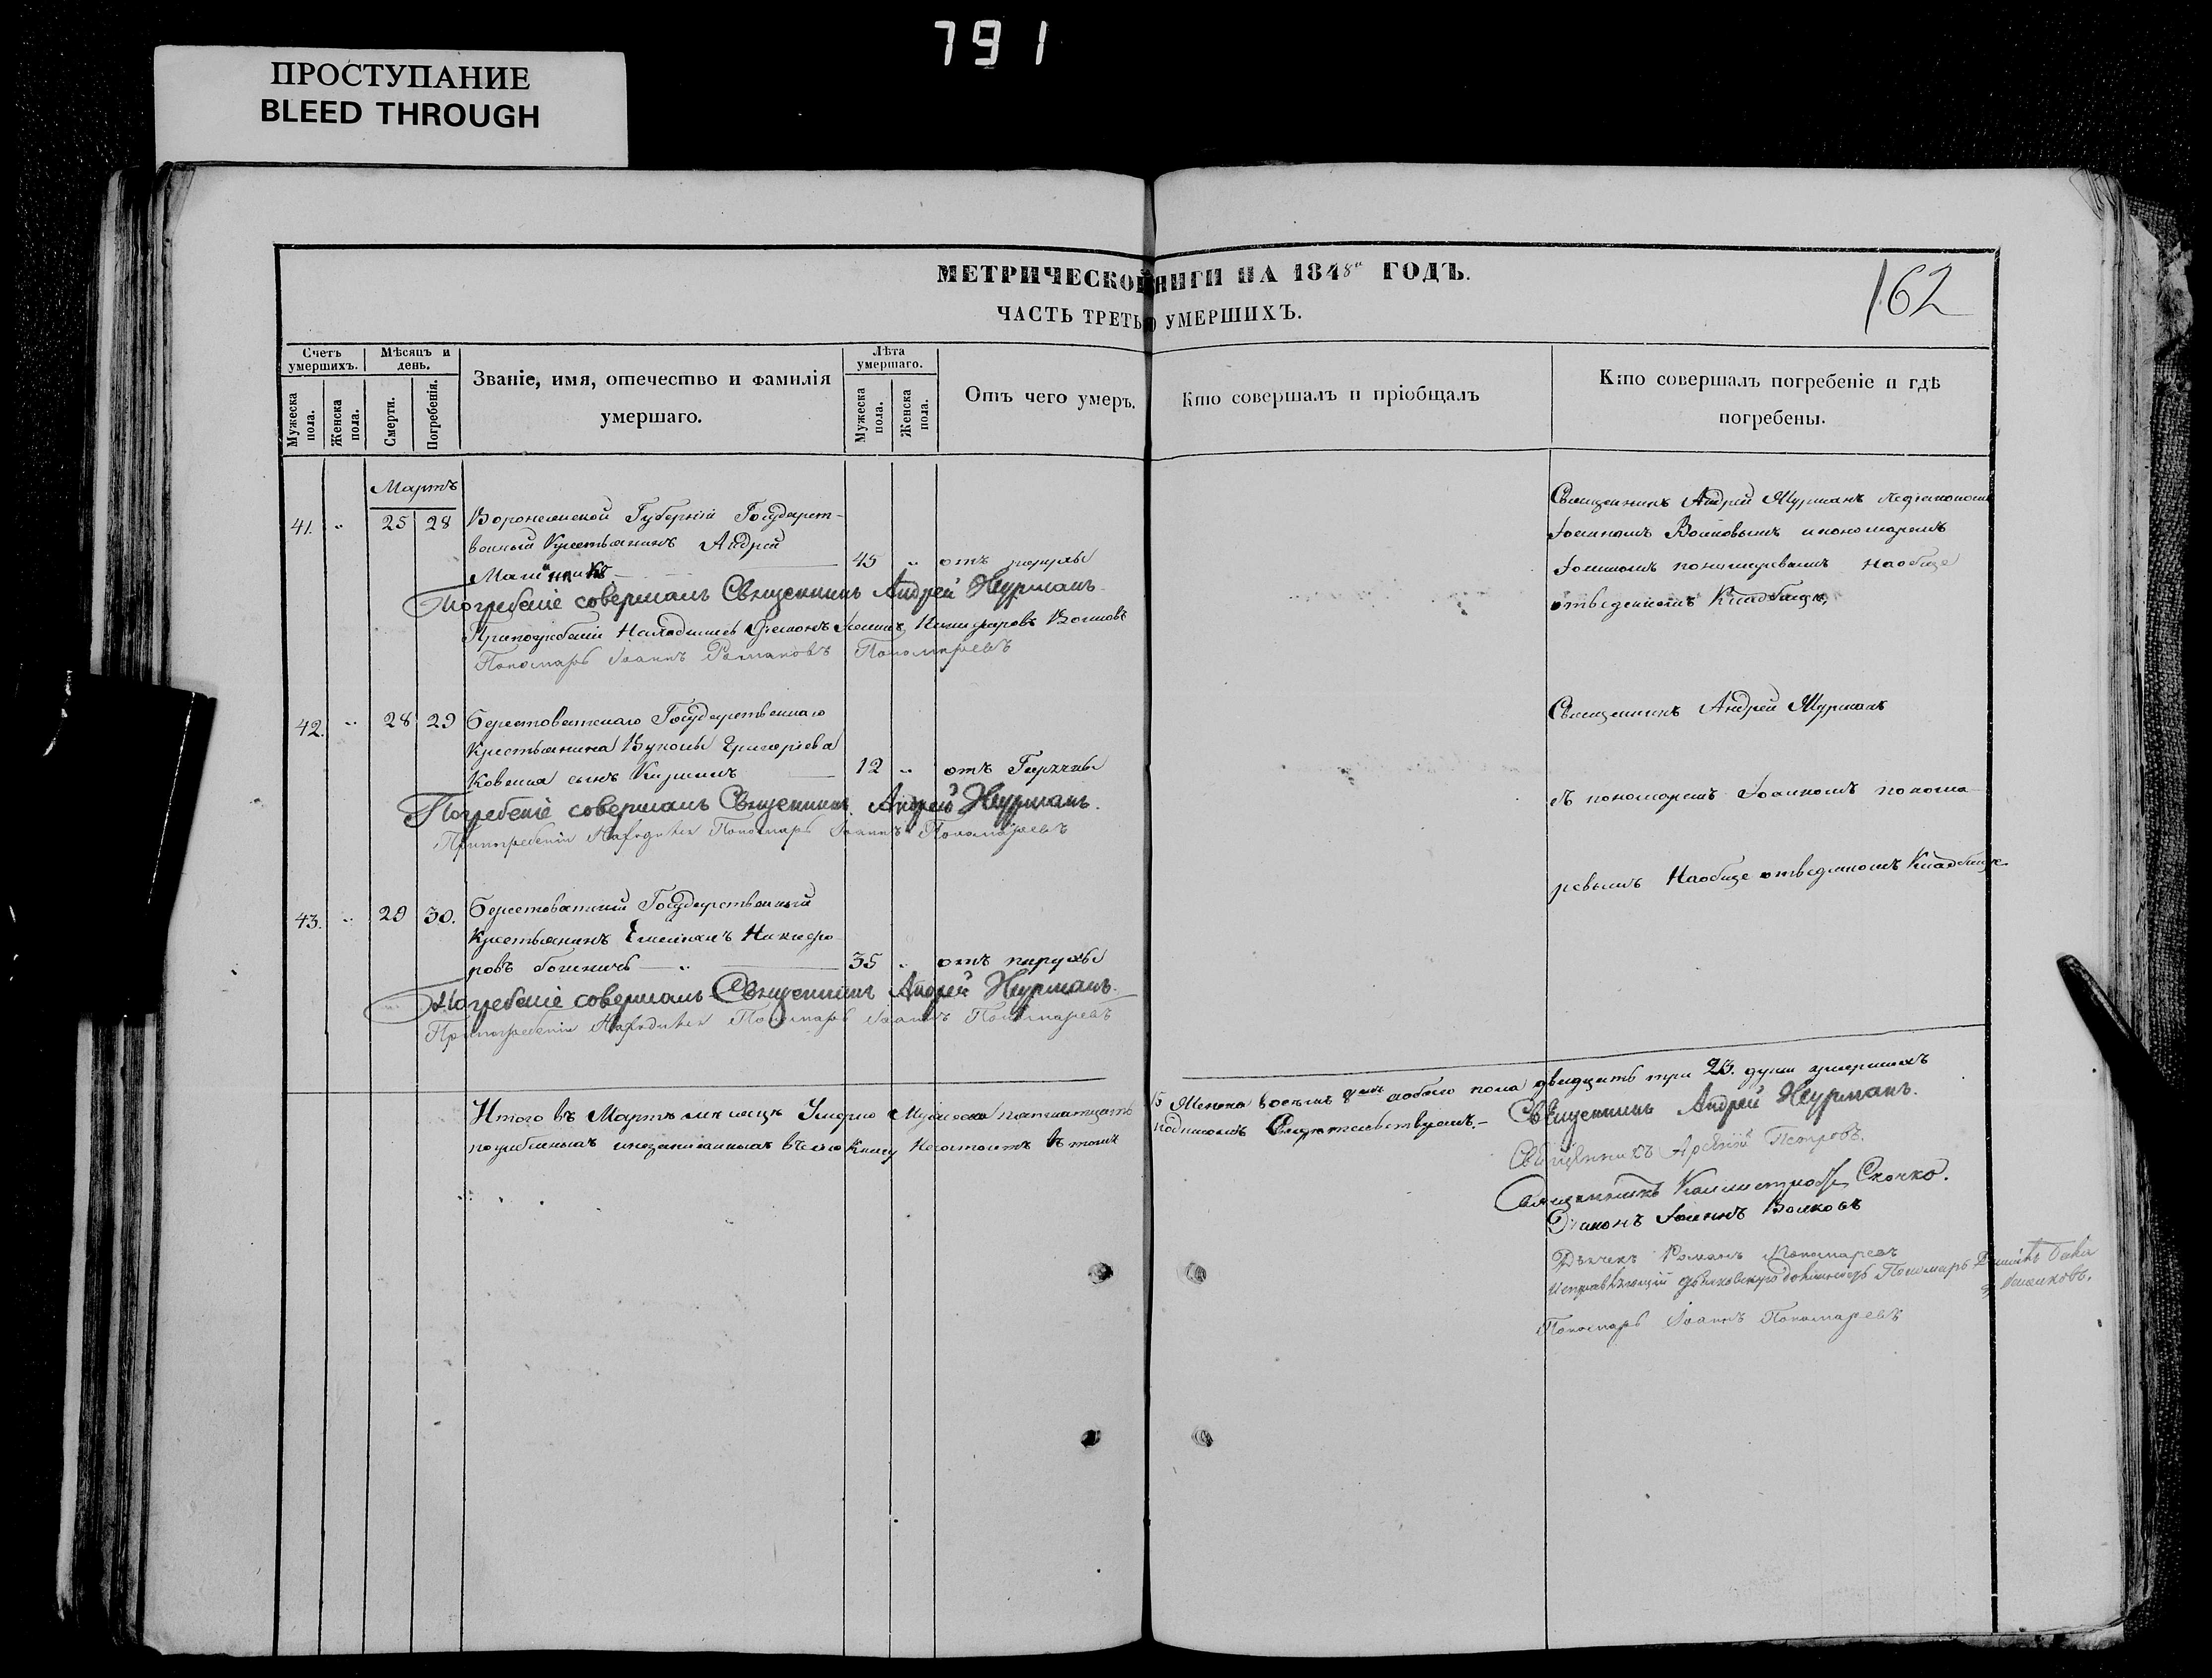 791
ПРОСТУПАНИЕ
BLEED THROUGH
МЕТРИЧЕСКОЙ НИГИ НА 1848а ГОДЪ.
162
ЧАСТЬ ТРЕТЬ О УМЕРШИХЪ.
Счетъ умершихъ.
Мѣсяцъ и день.
Званіе, имя, отечество и фамилія умершаго.
Лѣта умершаго.
Отъ чего умеръ.
Кто совершалъ и пріобщалъ
Кто совершалъ погребеніе и гдѣ погребены.
Мужеска пола.
Женска пола.
Смерти.
Погребенія.
Мужеска пола.
Женска пола.
Мартъ
41. " 25 28 Воронежской Губерніи Государст-
венный Крестьянинъ Андрей
45 " отъ
Погребеніе совершалъ Священникъ Андрей Журманъ
При погребеніи Находились Діаконъ Іоаннъ Никифоровъ Волковъ
Пономарь Іоаннъ Романовъ Пономаревъ
Священникъ Андрей Журманъ
Іоанномъ Волковымъ и пономаремъ
Іоанномъ пономаревымъ Наобще
отведенномъ Кладбище,
42. " 28 29 Берестоватскаго Государственнаго
Крестьянина Вуколы Григоріева
сынъ 12 " отъ Горячки
Погребеніе совершалъ Священникъ Андрей Журманъ.
При погребеніи Находился Пономарь Іоаннъ Пономаревъ
Священникъ Андрей Журманъ
съ пономаремъ Іоанномъ понома-
ревымъ Наобще отведенномъ Кладбище
43. " 29 30. Берестоватскій Государственный
Крестьянинъ Емеліанъ Никифо-
ровъ 35 " отъ
Погребеніе совершалъ Священникъ Андрей Журманъ.
При погребеніи Находился Пономарь Іоаннъ Пономаревъ
Итого въ Мартѣ месяцѣ Умерло Мужеска пятнатцать 15 Женска восемь 8 а обоего пола двадцать три 23. души умершихъ
погребенныхъ и незаписанныхъ въ сію Книгу Несостоитъ въ томъ подписомъ Свидетельствуемъ.- Священникъ Андрей Журманъ.
Священникъ Арсеній Петровъ.
Священникъ Каллистратъ Скочко.
Діаконъ Іоаннъ Волковъ
Дьячекъ Романъ Пономаревъ
Исправляющій дьячковскую должность Пономарь
Пономарь Іоаннъ Пономаревъ